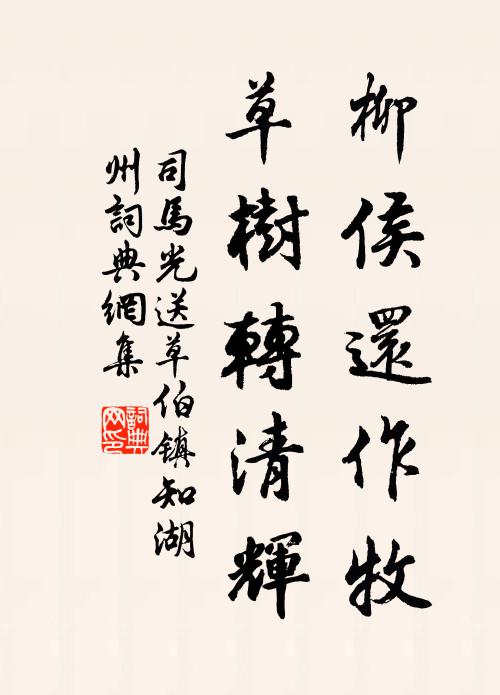 柳侯還作牧
草樹轉清輝
司馬光送草伯鎮知湖
州詞典網集
詞典网印